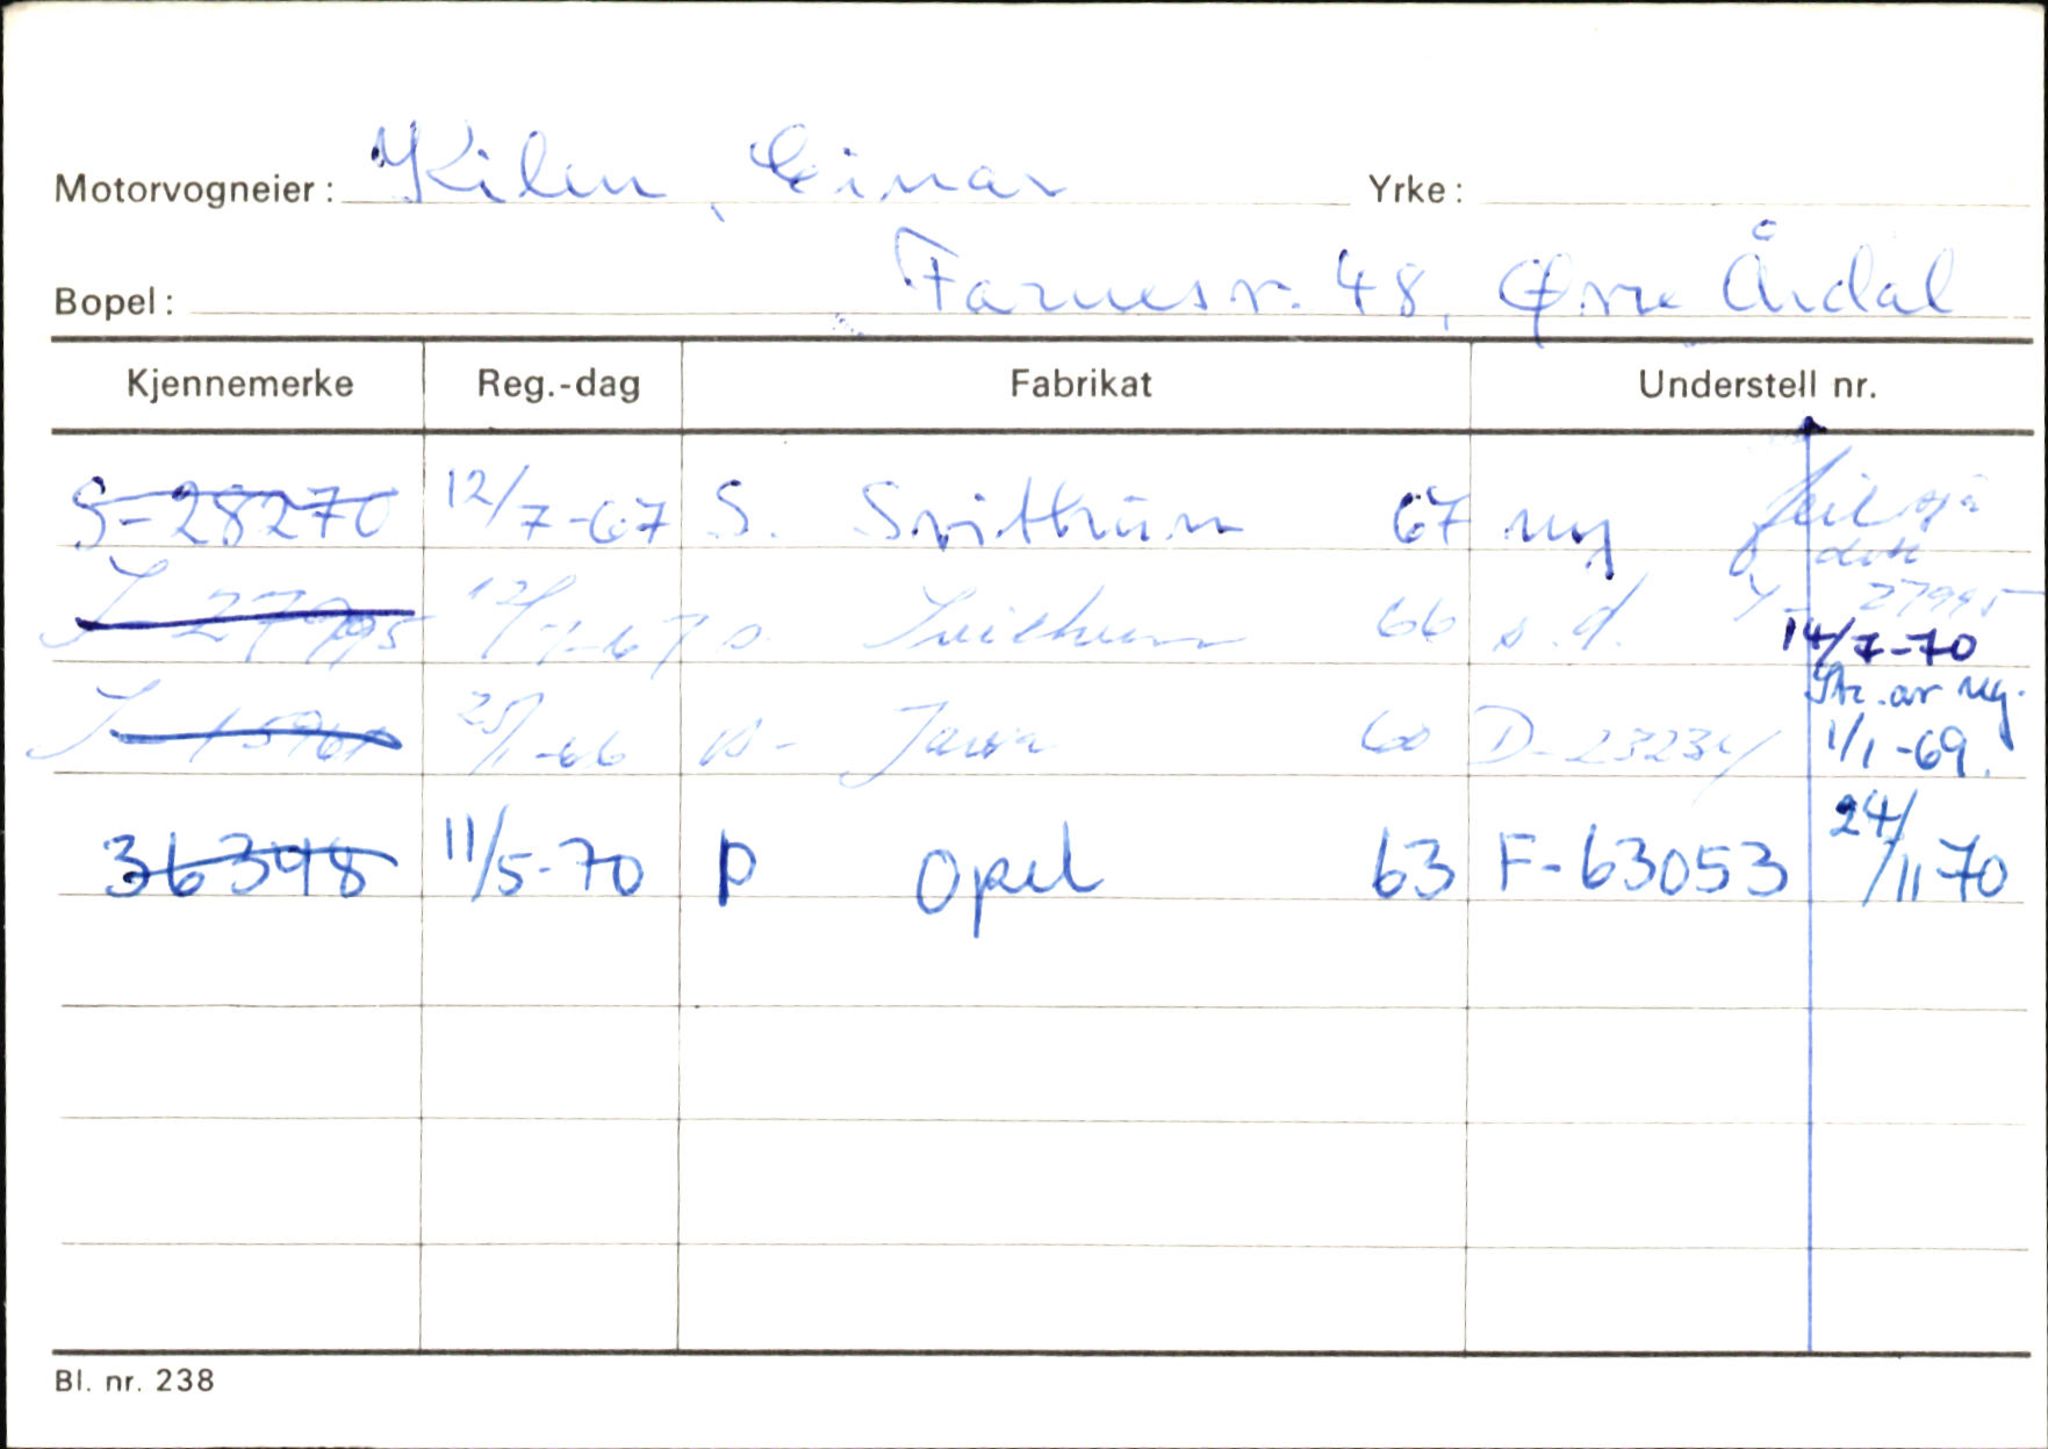 Motorvogneier: Kilen, Einar Yrke:
Bopel: Farnesv. 48, Øvre Årdal
Kjennemerke Reg.-dag Fabrikat Understell nr.
S-28270 12/7-67 S. Svithun 67 ny feil
S-27995 12/7-67 s. Svithun 66 s.d. S-27995
14/7-70
S- 25/1-66 s- Jawa 60 D-23234 Str. av reg.
1/1-69.
36398 11/5-70 p Opel 63 F-63053 24/11 70
Bl. nr. 238